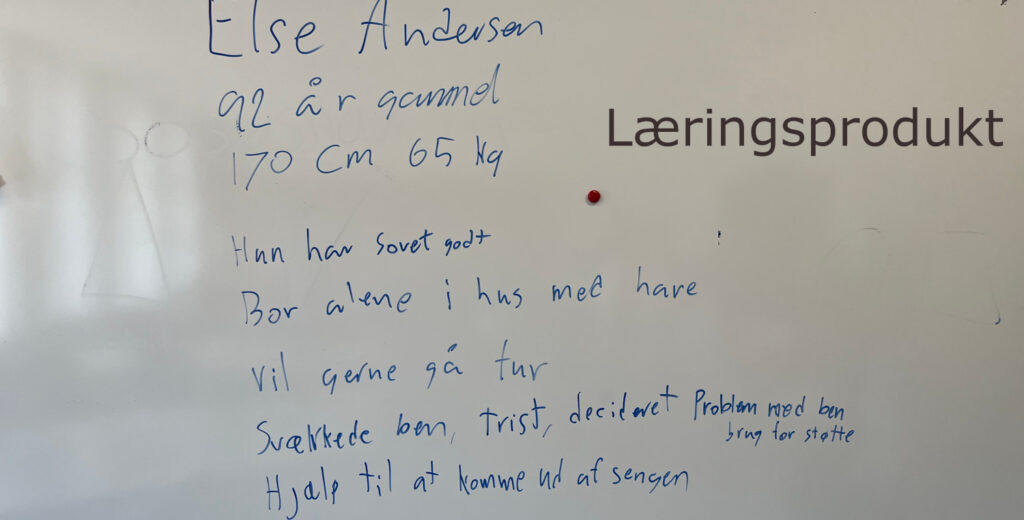 Else Andersen
92 år gammel
170 cm 65 kg
Læringsprodukt
Hun har sovet godt
Bor alene i hus med have
Vil gerne gå tur
Svækkede ben, trist, decideret Problem med ben
brug for støtte
Hjælp til at komme ud af sengen